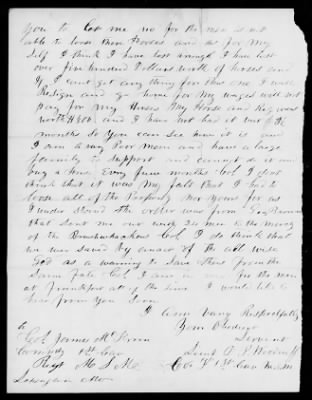 you to let me no for the men is not
able to loose there Horses and as for my
self I think I have lost enough I have lost
over five hundred Dollars worth of horses and
if I cant get any thing for this one I will
Resign and go home for My wages will not
pay for my Horses My Horse and Rig was
worth and I have not had it over
months So you can see how it is and
I am a very Poor man and have a large
family to support and cannot do it and
buy a horse Every few months Col I dont
think that it was My falt that I had to
loose all of the Property nor yours for as
I under stand the order was from Gen
that Sent me out with 20 men to the mercy
of the Bushwhackers Col I do think that
we was Saved by of the all wise
God as a warning to Save them from the
Same fate Col I am in for the men
at Frankfort all of the time I would like to
hear from you Soon
I am Very Respectfully
Your Obedient
Servent
to
Col James McFerran
Comondg 1st Cav
Regt M S M
Lexington Mo
Lieut
Co 1st Cav M.S.M